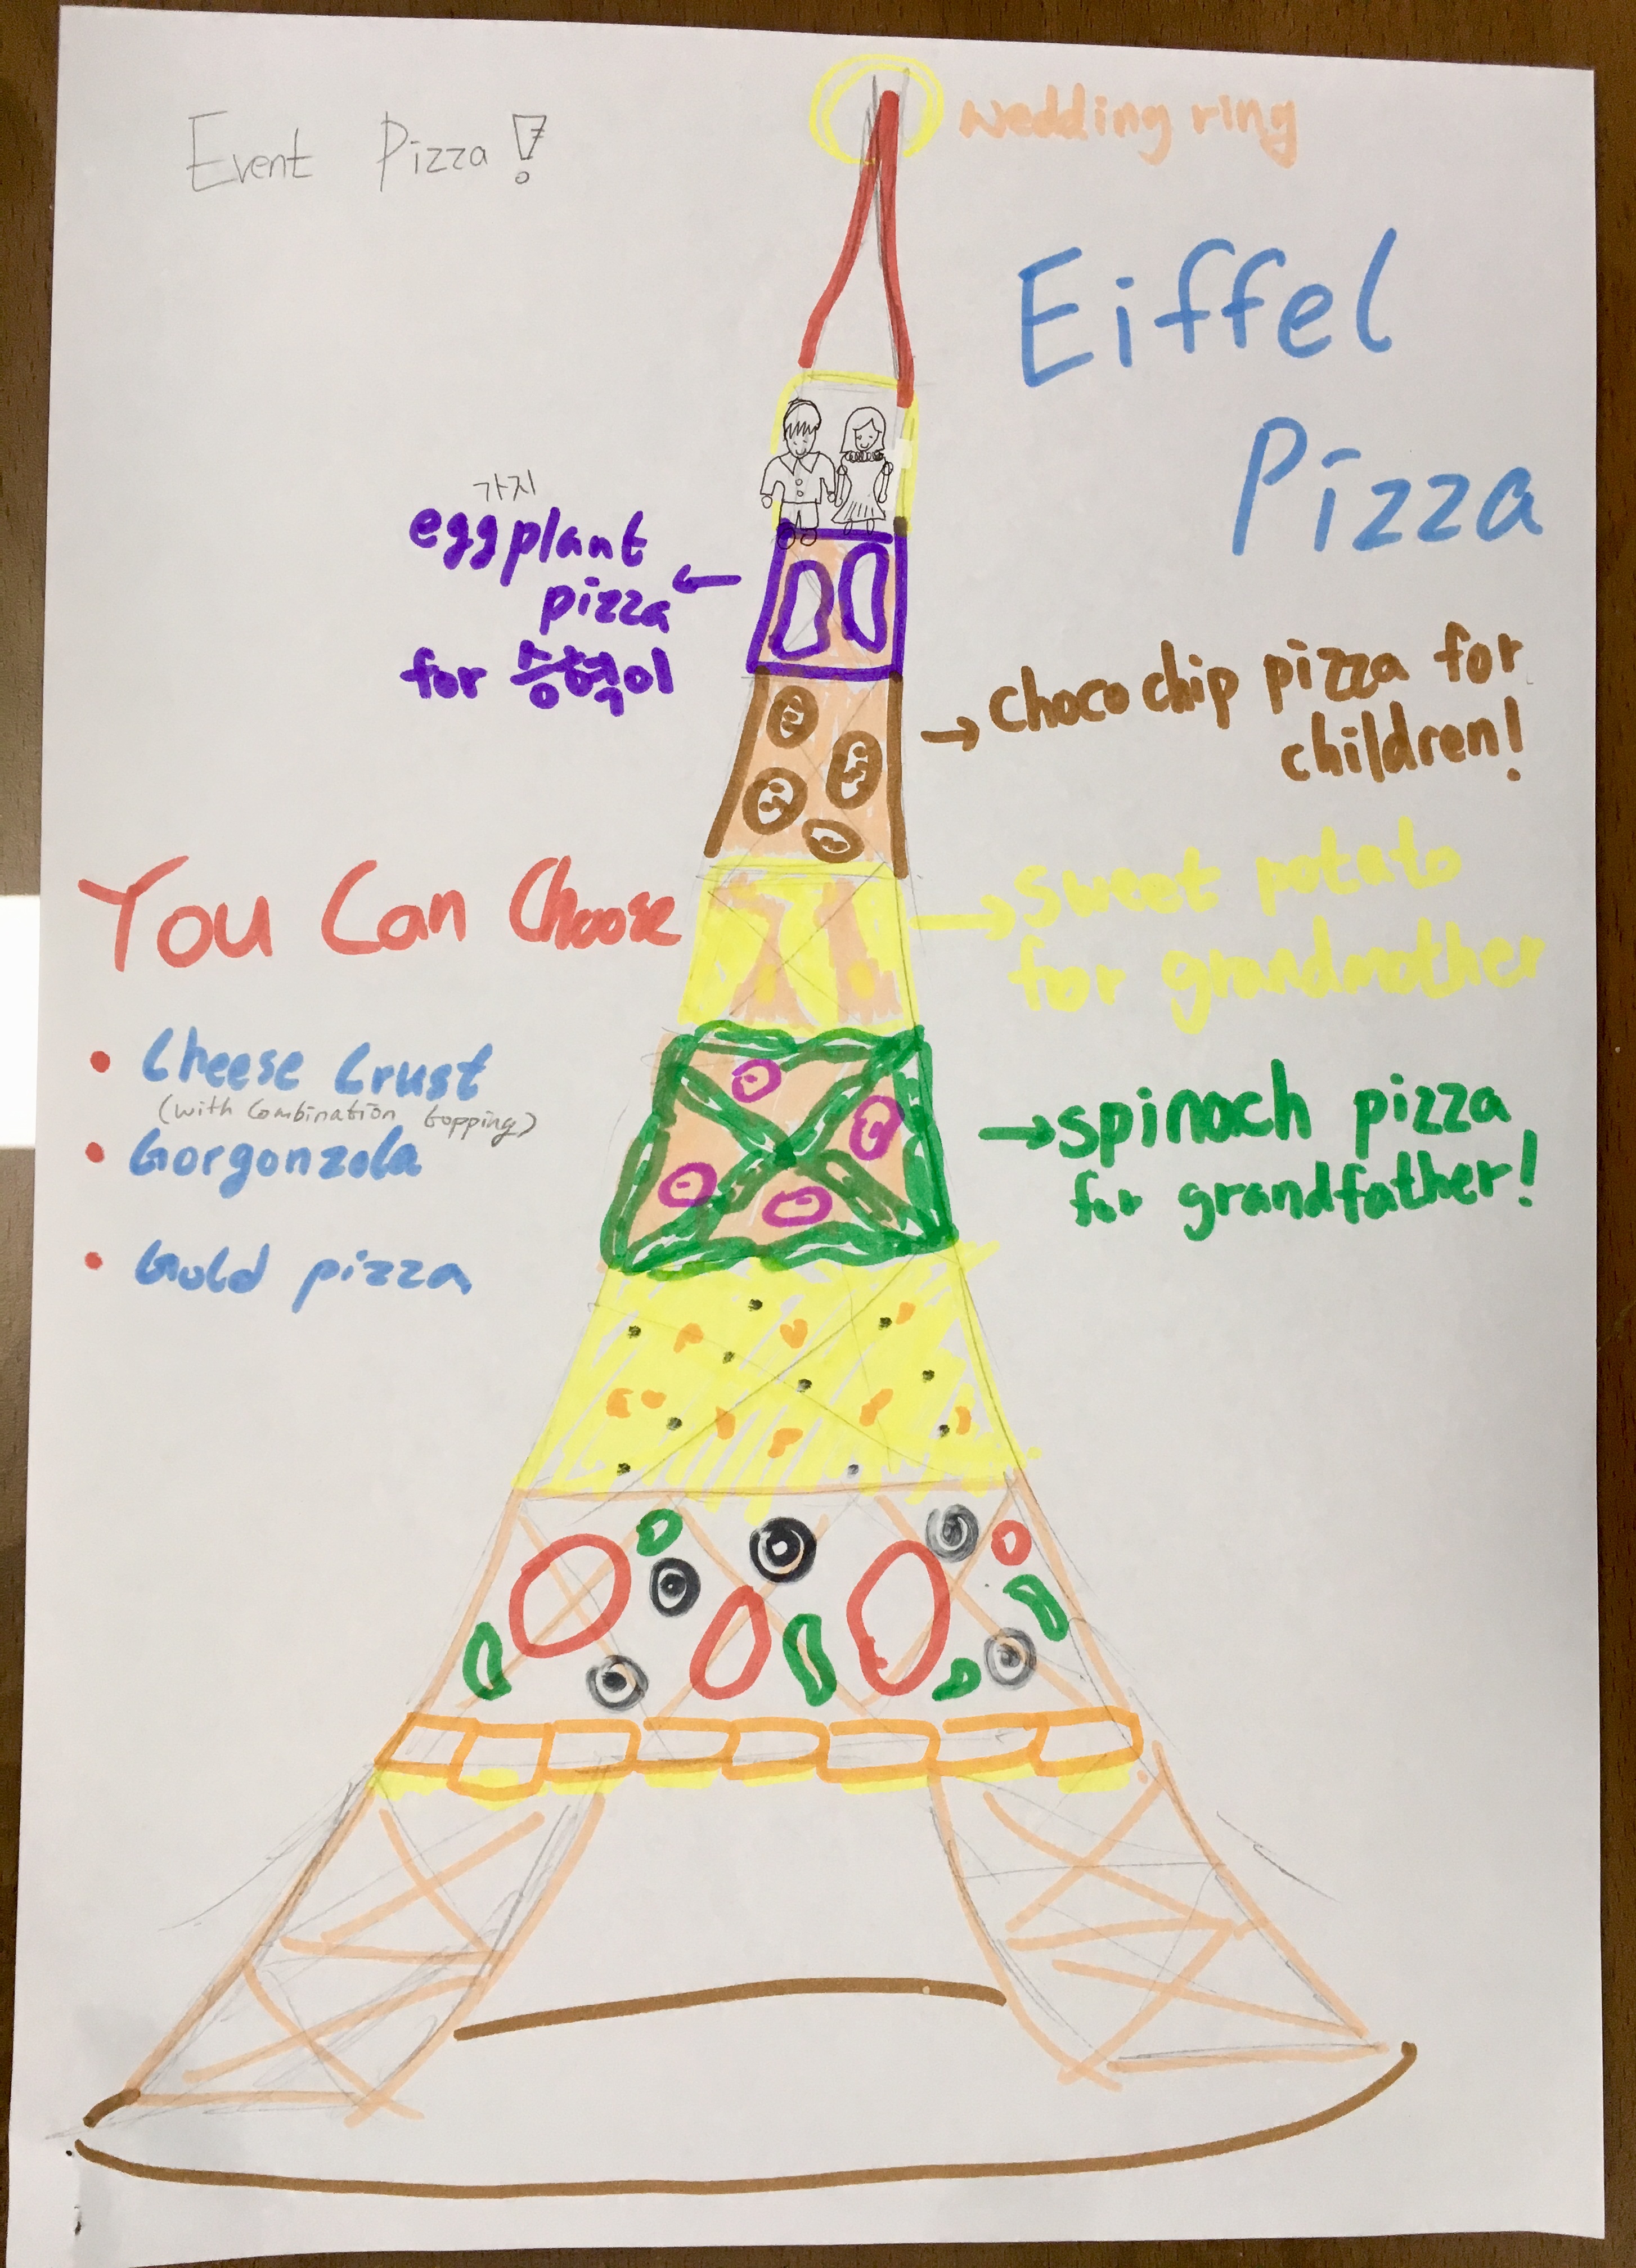 Event Pizza!
wedding ring
Eiffel
Pizza
가지
eggplant
pizza
for 승혁이
choco chip pizza for
children!
You Can Choose
sweet potato
for grandmother
• Cheese Crust
(with Combination topping)
• Gorgonzola
• Gold pizza
spinach pizza
for grandfather!